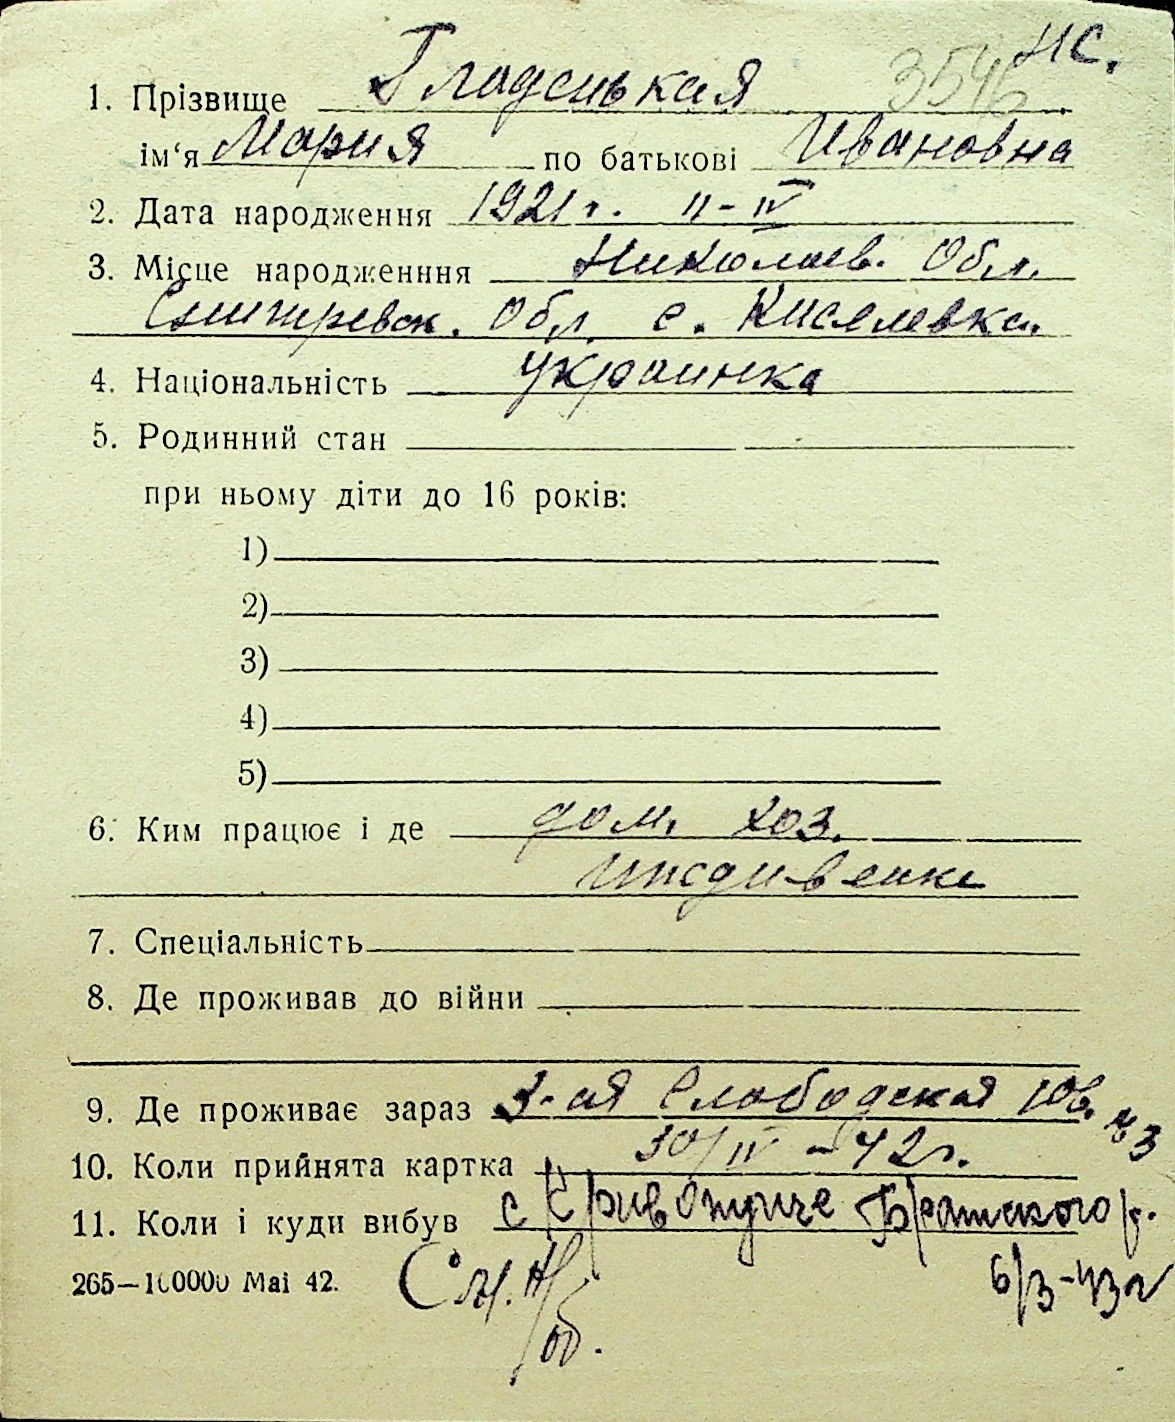 нс.
3546
1. Прізвище Гладенькая
ім'я Мария по батькові Ивановна
2. Дата народження 1921 г. 11-IV
3. Місце народженння Николаев. Обл.
Снигиревск. Обл с. Киселевка.
4. Національність украинка
5. Родинний стан
при ньому діти до 16 років:
1)
2)
3)
4)
5)
6. Ким працює і де дом. хоз.
иждивенка
7. Спеціальність
8. Де проживав до війни
9. Де проживає зараз 3-ая Слободская 10в. № 3
10. Коли прийнята картка 30/IV - 42 г.
11. Коли і куди вибув с Кривопуще Братского р.
265—100000 Mai 42. 6/3-43 г